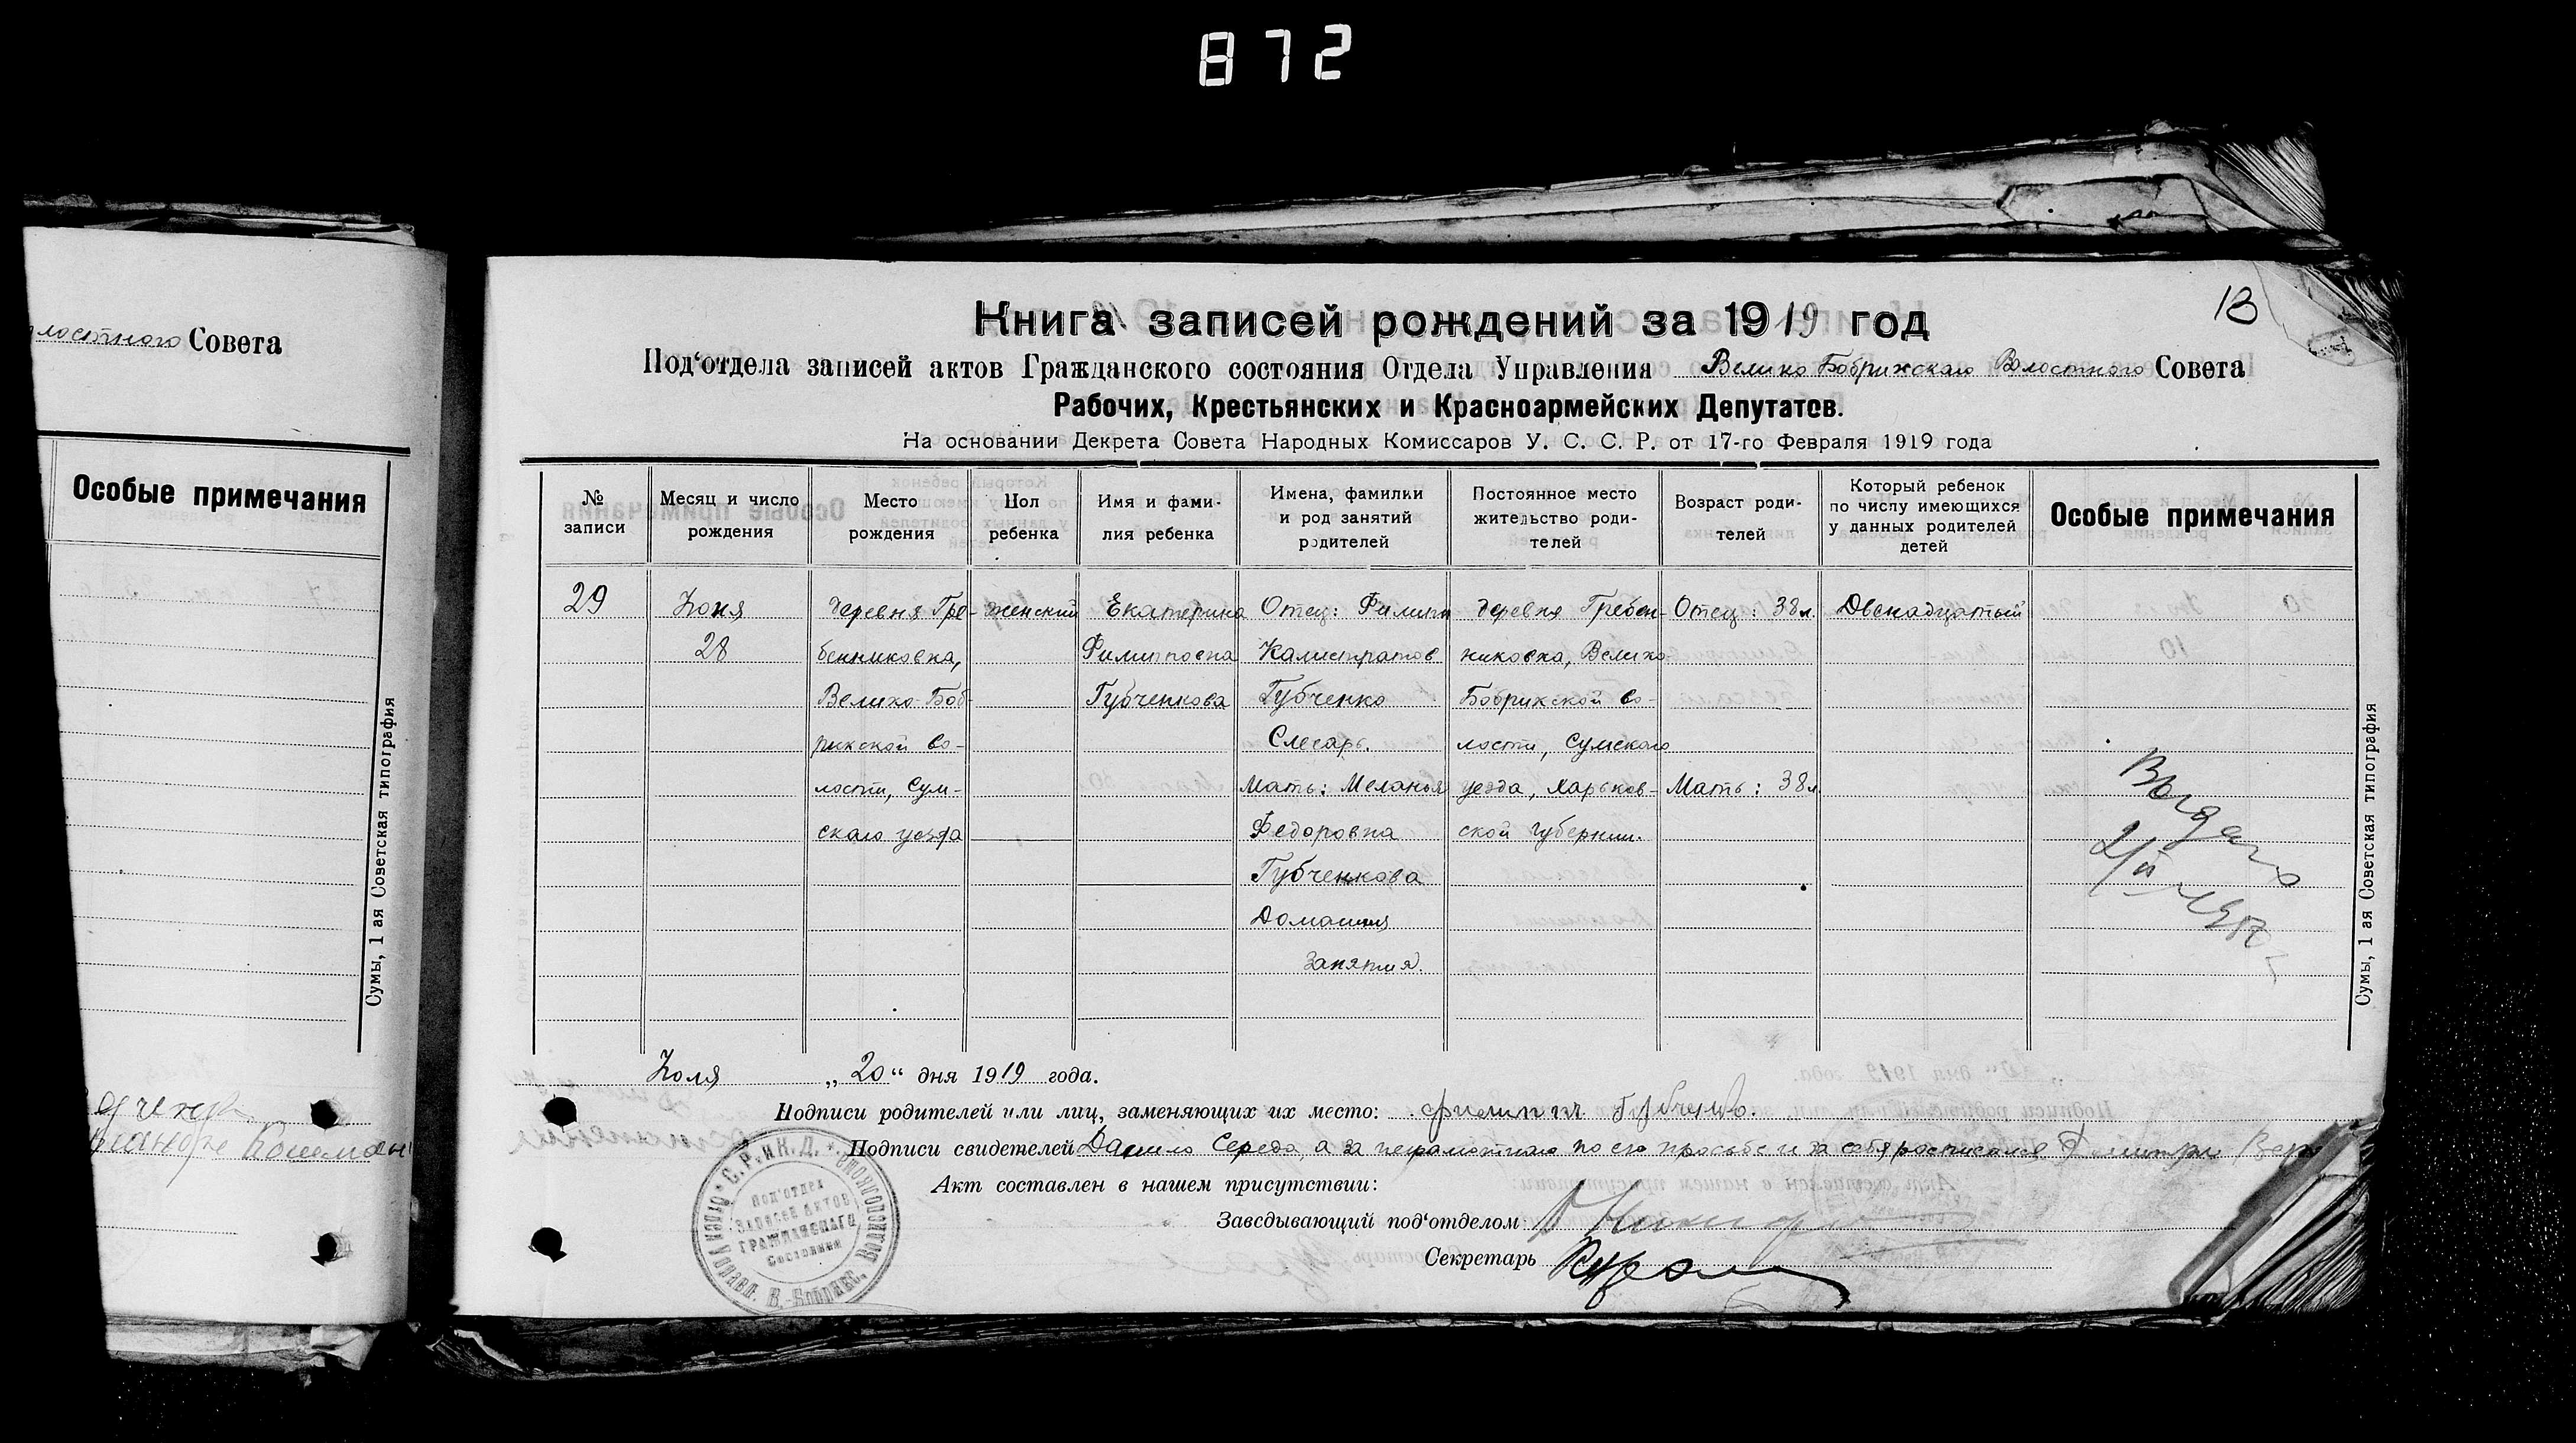 872
лостного Совета
Особые примечания
Сумы, 1 ая Советская типография
13
Книга записей рождений за 1919 год
Под‘отдела записей актов Гражданского состояния Отдела Управления Велико Бобрикского Волостного Совета
Рабочих, Крестьянских и Красноармейских Депутатов.
На основании Декрета Совета Народных Комиссаров У. С. С. Р. от 17-го Февраля 1919 года
№ записи
Месяц и число рождения
Место рождения
Пол ребенка
Имя и фами-
лия ребенка
Имена, фамилки
и род занятий
родителей
Постоянное место
жительство роди-
телей
Возраст роди-
телей
Который ребенок
по числу имеющихся
у данных родителей
детей
Особые примечания
29
Юня
28
деревня Гре-
бенниковка,
Велико-Боб-
рикской во-
лости, Сум-
ского уезда
женский
Екатерина
Филипповна
Губченкова
Отец: Филипп
Калистратов
Губченко
Слесарь.
Мать: Меланья
Федоровна
Губченкова
Домашния
занятия.
деревня Гребен-
никовка, Велико-
Бобрикской во-
лости, Сумского
уезда, Харьков-
ской губернии.
Отец: 38 л.
Мать: 38 л
Двенадцатый
Сумы, 1 ая Советская типография
Юля „20“ дня 1919 года.
Подписи родителей или лиц, заменяющих их место: филипп Губченко.
Подписи свидетелей Данило Середа а за неграмотного по его просьбе и за себя росписался
Акт составлен в нашем присутствии:
Заведывающий под‘отделом
Секретарь
Под‘отдел
Записей Актов
Гражданскаго
Состояния